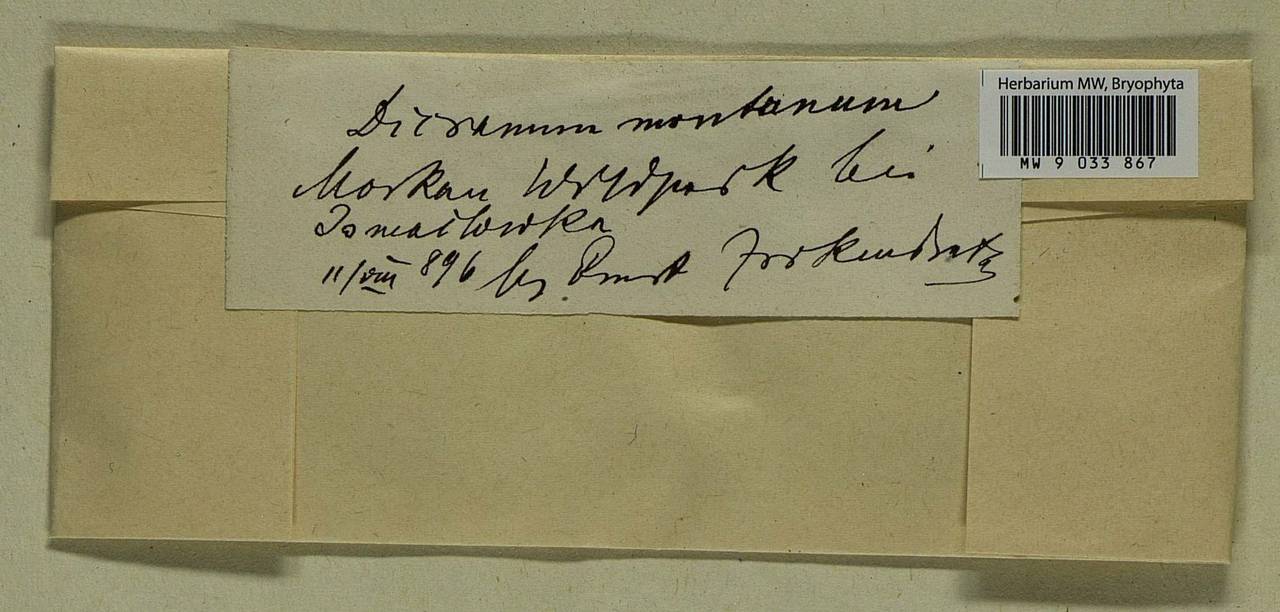 Dicranum montanum
Moskau Wildpark bei
Ismailowka
11/VIII 896 leg Ernst Zickendrath
Herbarium MW, Bryophyta
MW 9 033 867